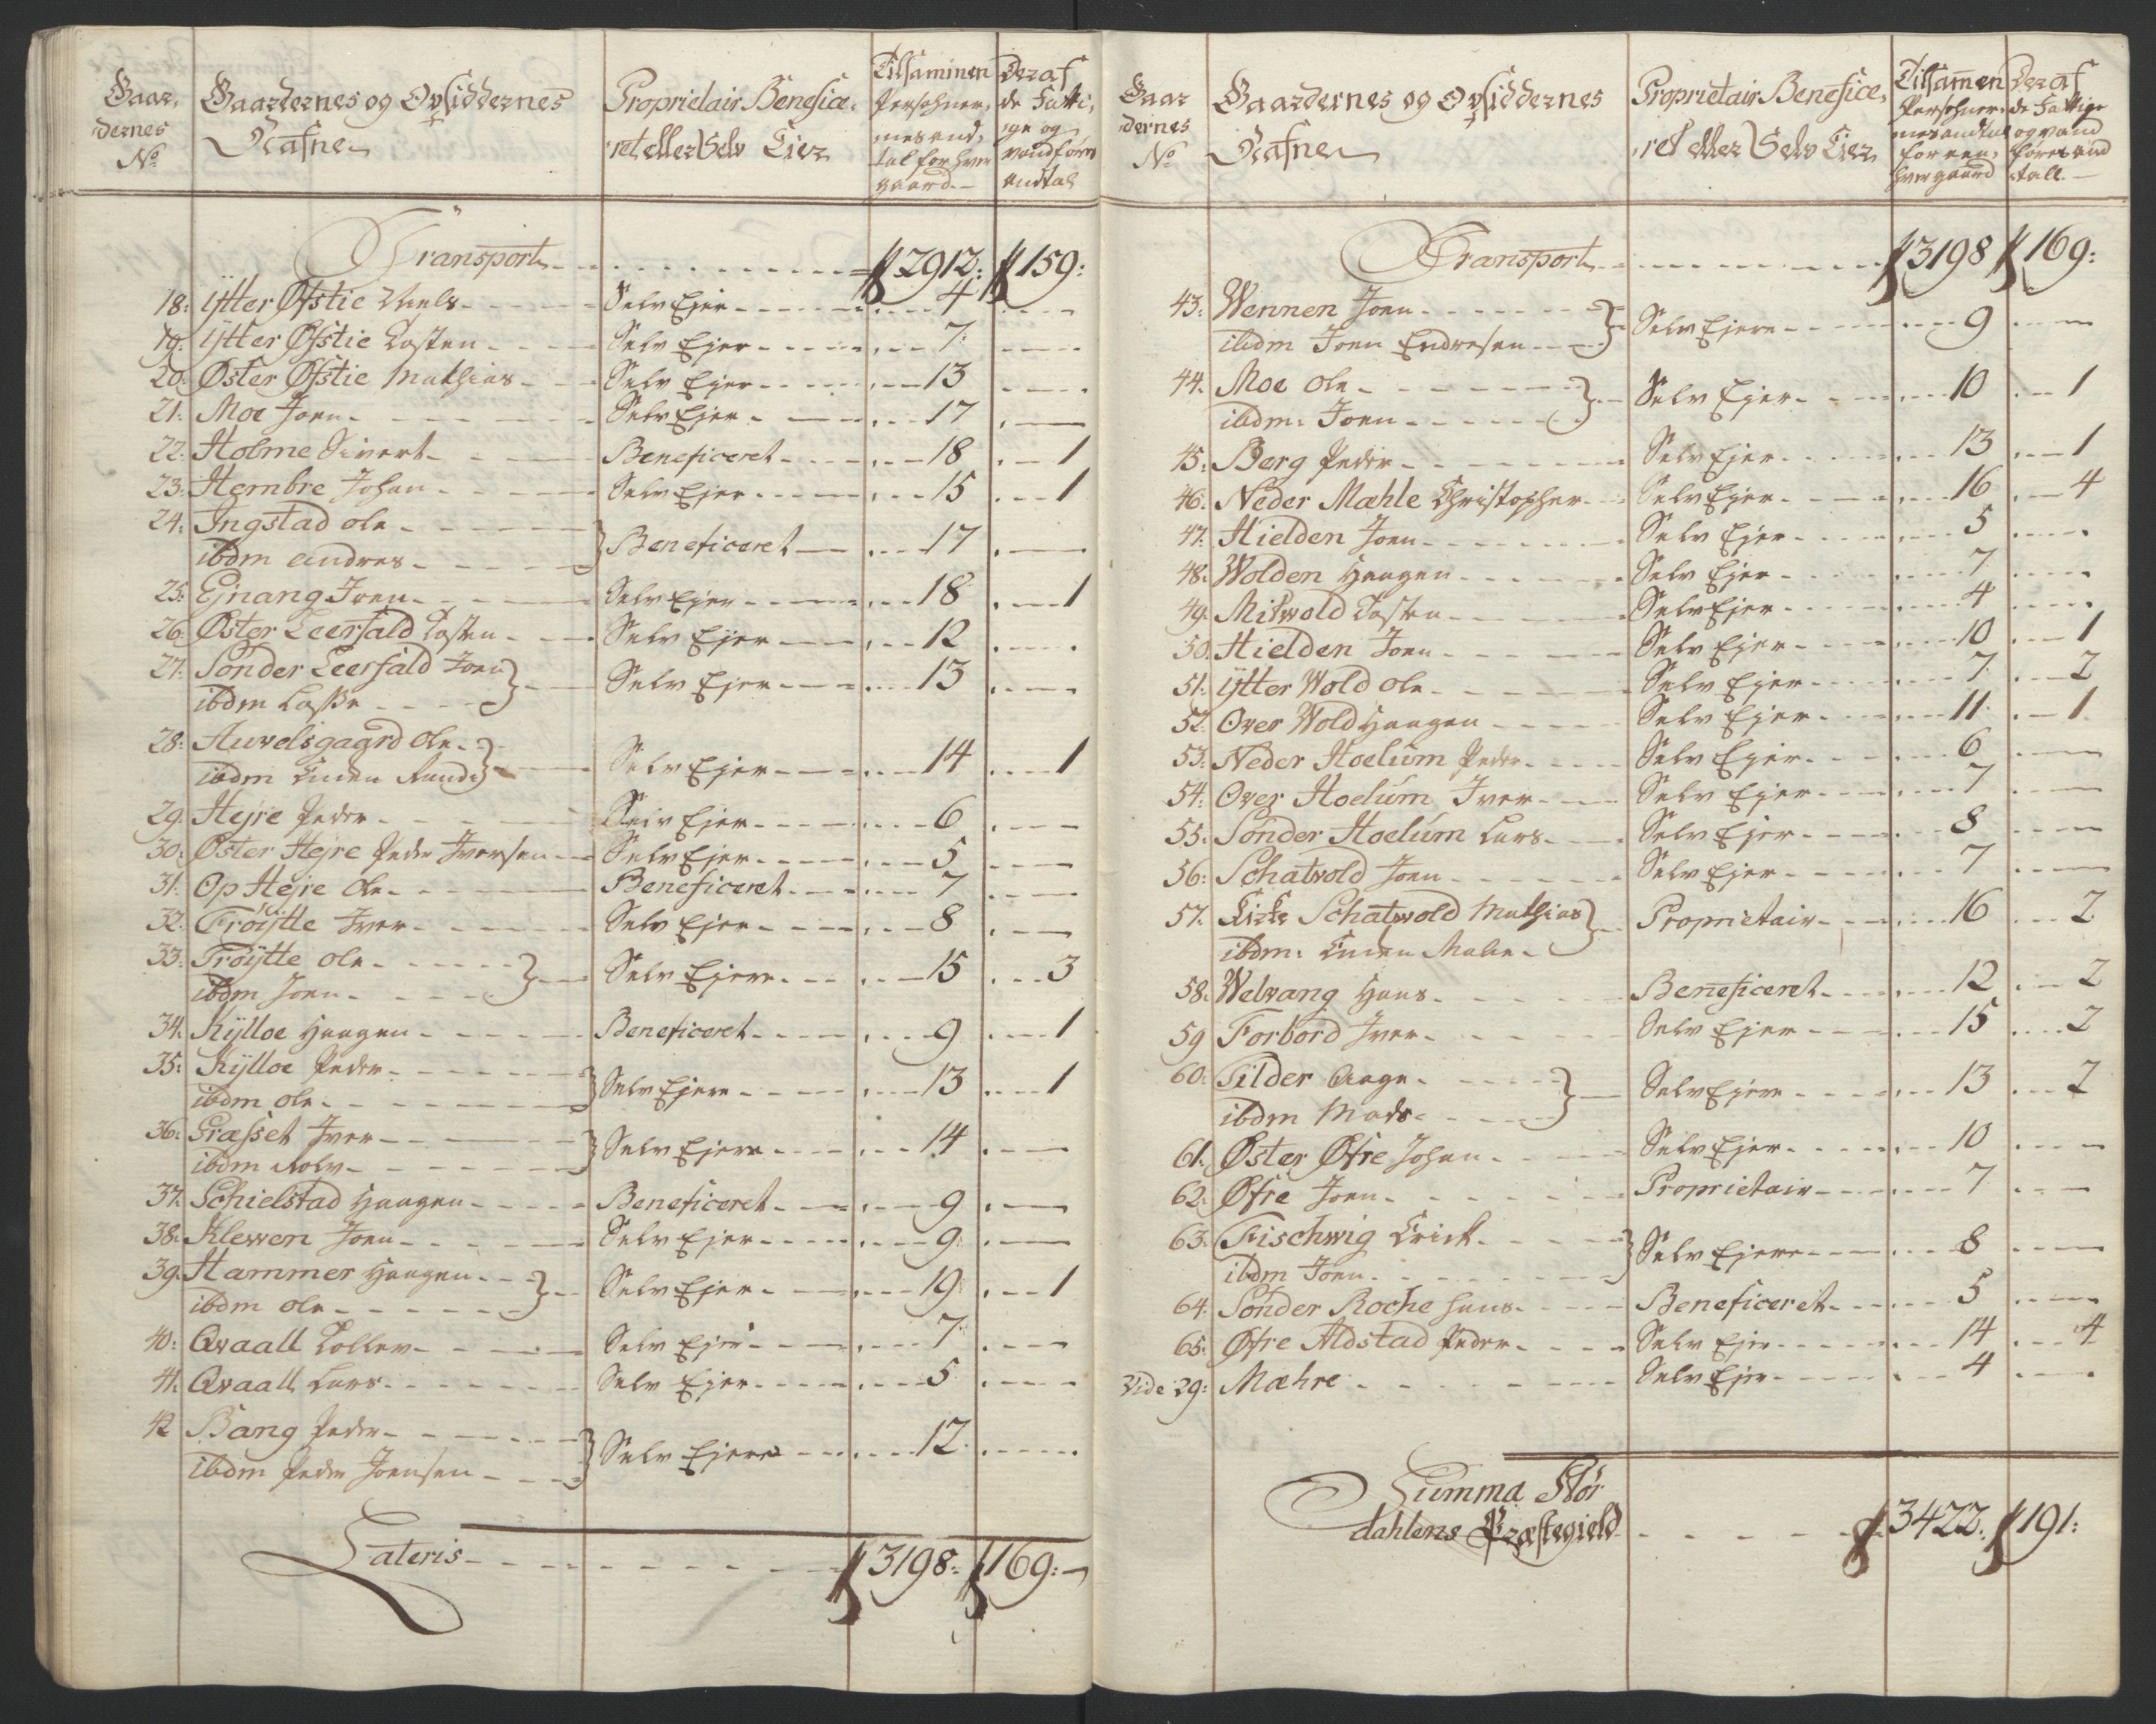 Gaar,
dernes
No
Gaardernes og Opsiddernes
Nafne
Proprietair Benefice,
ret eller Selv Eier
Tilsammen
Persohner,
nes and,
tal for hver
gaard
Deraf
de Fatti,
ge og
vandføres
andtal
Transport 2912: 159:
18: Ytter Øfstie Niels Selv Ejer 4
19: Ytter Øfstie Lasten Selv Ejer 7
20: Øster Øfstie Mathias Selv Ejer 13
21: Moe Joen Selv Ejer 17
22: Holme Sivert Beneficeret 18 1
23: Hembre Johan Selv Ejer 15 1
24: Ingstad Ole
ibdm Andres } Beneficeret 17
25: Ejnang Joen Selv Ejer 18 1
26: Øster Leersald Lasten Selv Ejer 12
27: Sonder Leersald Joen
ibdm Lasse } Selv Ejer 13
28: Auvelsgaard Ole
ibdm Enken Rande } Selv Ejer 14 1
29: Hejre Peder Selv Ejer 6
30: Øster Hejre Peder Iversen Selv Ejer 5
31: Op Hejre Ole Beneficeret 7
32: Frøÿtte Iver Selv Ejer 8
33: Frøÿtte Ole
ibdm Joen } Selv Ejere 15 3
34: Kÿlloe Haagen Beneficeret 9 1
35: Kÿlloe Peder
ibdm Ole } Selv Ejere 13 1
36: Præsset Iver
ibdm Rolv } Selv Ejere 14
37: Schielstad Haagen Beneficeret 9
38: Klewen Joen Selv Ejer 9
39: Hammer Haagen
ibdm Ole } Selv Ejer 19 1
40: Qvaall Tollev Selv Ejer 7
41: Qvaall Lars Selv Ejer 5
42 Bang Peder
ibdm Peder Joensen } Selv Ejere 12
Lateris 3198: 169:
Gaar
dernes
No
Gaardernes og Opsiddernes
Nafne
Proprietair Benefice,
ret eller Selv Eier
Tilsammen
Persohner,
nes andtal
for een,
hver gaard
Deraf
de Fattige
og vand
føres and
tall.
Transport 3198 169:
43: Wennen Joen
ibdm Joen Endresen } Selv Ejere 9
44. Moe Ole
ibdm: Joen } Selv Ejer 10 1
45: Berg Peder Selv Ejer 13 1
46: Neder Mæhle Christopher Selv Ejer 16 4
47: Hielden Joen Selv Ejer 5
48: Wolden Haagen Selv Ejer 7
49. Mitwold Lasten Selv Ejer 4
50. Hielden Joen Selv Ejer 10 1
51: Ytter Wold Ole Selv Ejer 7 2
52. Over Wold Haagen Selv Ejer 11 1
53. Neder Hoelum Peder Selv Ejer 6
54: Over Hoelum Iver Selv Ejer 7
55: Sonder Hoelum Lars Selv Ejer 8
56: Schatvold Joen Selv Ejer 7
57. Kirke Schatwold Mathias
ibdm: Enken Malie } Proprietair 16 2
58. Welvang Hans Beneficeret 12 2
59 Forbord Iver Selv Ejer 15 2
60. Tilder Aage
ibdm Mads } Selv Ejere 13 2
61. Øster Øfre Johan Selv Ejer 10
62: Øfre Joen Proprietair 7
63: Fischwig Erich
ibdm Joen } Selv Ejere 8
64: Sonder Roche Hans Beneficeret 5
65: Øfre Aldstad Peder Selv Ejer 14 4
Vide 29: Mæhre Selv Ejer 4
Summa Stør
dahlens Præstegield 3422: 191: